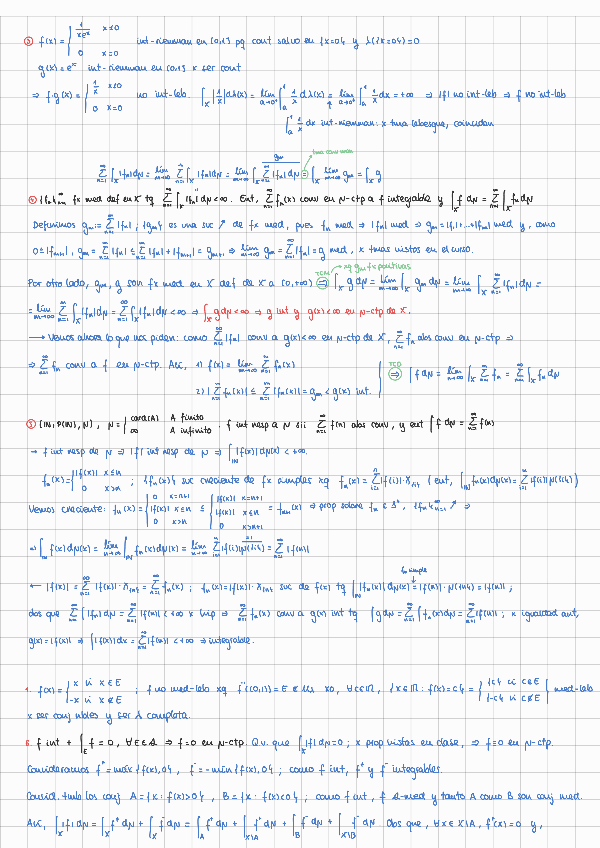 ③ f(x) = { 1/√x x≠0 ; 0 x=0 int-riemman en [0,1] pq cont salvo en {x=0} y λ({x=0})=0
int-riemman en [0,1] x ser cont
⇒ f·g(x) = { 1/x x≠0 ; 0 x=0 no int-leb. ∫_X |1/x| dλ(x) = lím_{a→0⁺} ∫_a^1 1/x dλ(x) = lím_{a→0⁺} ∫_a^1 1/x dx = +∞ ⇒ |f| no int-leb ⇒ f no int-leb
∫_a^1 1/x dx int-riemman: x tma lebesgue, coinciden
tma conv mon
Σ_{n=1}^∞ ∫_X |f_n| dN = lím_{m→∞} Σ_{n=1}^m ∫_X |f_n| dN = lím_{m→∞} ∫_X Σ_{n=1}^m |f_n| dN = ∫_X lím_{m→∞} g_m = ∫_X g
④ {f_n}_{n=1}^∞ fx med def en X tq Σ_{n=1}^∞ ∫_X |f_n| dN < ∞. Ent, Σ_{n=1}^∞ f_n(x) conv en N-ctp a f integrable y ∫_X f dN = Σ_{n=1}^∞ ∫_X f_n dN
Definimos g_m := Σ_{n=1}^m |f_n| ; {g_m} es una suc ↗ de fx med, pues f_n med ⇒ |f_n| med ⇒ g_m = |f_1|+...+|f_m| med y, como
0 ≤ |f_{m+1}|, g_m = Σ_{n=1}^m |f_n| ≤ Σ_{n=1}^m |f_n| + |f_{m+1}| = g_{m+1} ⇒ lím_{m→∞} g_m = Σ_{n=1}^∞ |f_n| = g med, x tmas vistos en el curso.
TCM xq g_m fx positivas
Por otro lado, g_m, g son fx med en X def de X a [0,+∞) ⇒ ∫_X g dN = lím_{m→∞} ∫_X g_m dN = lím_{m→∞} ∫_X Σ_{n=1}^m |f_n| dN =
= lím_{m→∞} Σ_{n=1}^m ∫_X |f_n| dN = Σ_{n=1}^∞ ∫_X |f_n| dN < ∞ ⇒ ∫_X g dN < ∞ ⇒ g int y g(x) < ∞ en N-ctp de X.
→ Vemos ahora lo que nos piden: como Σ_{n=1}^∞ |f_n| conv a g(x) < ∞ en N-ctp de X, Σ_{n=1}^∞ f_n abs conv en N-ctp ⇒
⇒ Σ_{n=1}^∞ f_n conv a f en N-ctp. Así, 1) f(x) = lím_{m→∞} Σ_{n=1}^m f_n(x)
2) |Σ_{n=1}^m f_n(x)| ≤ Σ_{n=1}^m |f_n(x)| = g_m < g(x) int. TCD ⇒ ∫ f dN = lím_{m→∞} ∫_X Σ_{n=1}^m f_n = Σ_{n=1}^∞ ∫_X f_n dN
⑤ (ℕ, P(ℕ), N), N = { card(A) A finito ; ∞ A infinito. f int resp a N sii Σ_{n=1}^∞ f(n) abs conv, y ent ∫ f dN = Σ_{n=1}^∞ f(n)
→ f int resp de N ⇒ |f| int resp de N ⇒ ∫_ℕ |f(x)| dN(x) < +∞.
f_n(x) = { |f(x)| x≤n ; 0 x>n ; {f_n(x)} suc creciente de fx simples xq f_n(x) = Σ_{i=1}^n |f(i)|·χ_{{i}} (ent, ∫_ℕ f_n(x) dN(x) = Σ_{i=1}^n |f(i)| N({i})
Vemos creciente: f_n(x) = { 0 x=n+1 ; |f(x)| x≤n ; 0 x>n ≤ { |f(x)| x=n+1 ; |f(x)| x≤n ; 0 x>n+1 = f_{n+1}(x) ⇒ prop sobre f_n ∈ S⁺, {f_n}_{n=1}^∞ ↗ ⇒
⇒ ∫_ℕ f(x) dN(x) = lím_{n→∞} ∫_ℕ f_n(x) dN(x) = lím_{n→∞} Σ_{i=1}^n |f(i)| N({i}) = Σ_{n=1}^∞ |f(n)|
f_n simple
← |f(x)| = Σ_{n=1}^∞ |f(x)|·χ_{{n}} = Σ_{n=1}^∞ f_n(x) ; f_n(x) = |f(x)|·χ_{{n}} suc de f(x) tq ∫_ℕ |f_n(x)| dN(x) = |f(n)|·N({n}) = |f(n)| ;
dos que Σ_{n=1}^∞ ∫ |f_n| dN = Σ_{n=1}^∞ |f(n)| < +∞ x hip ⇒ Σ_{n=1}^∞ f_n(x) conv a g(x) int tq ∫ g dN = Σ_{n=1}^∞ ∫ f_n(x) dN = Σ_{n=1}^∞ |f(n)| ; x igualdad ant,
g(x) = |f(x)| ⇒ ∫ |f(x)| dx = Σ_{n=1}^∞ |f(n)| < +∞ ⇒ integrable.
f(x) = { x si x∈E ; -x si x∉E ; f no med-leb xq f⁻¹((0,1)) = E ∉ x0, ∀c∈ℝ, {x∈ℝ : f(x)=c} = { {c} si c∈E ; {-c} si c∉E med-leb
x ser conj y ser λ completa.
8. f int + ∫_E f = 0, ∀E∈A ⇒ f=0 en N-ctp. Q.v. que ∫_X |f| dN = 0 ; x prop vistas en clase, ⇒ f=0 en N-ctp.
Consideramos f⁺ = máx{f(x),0}, f⁻ = -mín{f(x),0} ; como f int, f⁺ y f⁻ integrables.
Consid. tmb los conj A = {x : f(x)>0}, B = {x : f(x)<0} ; como f int, f A-med y tanto A como B son conj med.
Así, ∫_X |f| dN = ∫_X f⁺ dN + ∫_X f⁻ dN = ∫_A f⁺ dN + ∫_{X\A} f⁺ dN + ∫_B f⁻ dN + ∫_{X\B} f⁻ dN Dos que, ∀x∈X\A, f⁺(x)=0 y,